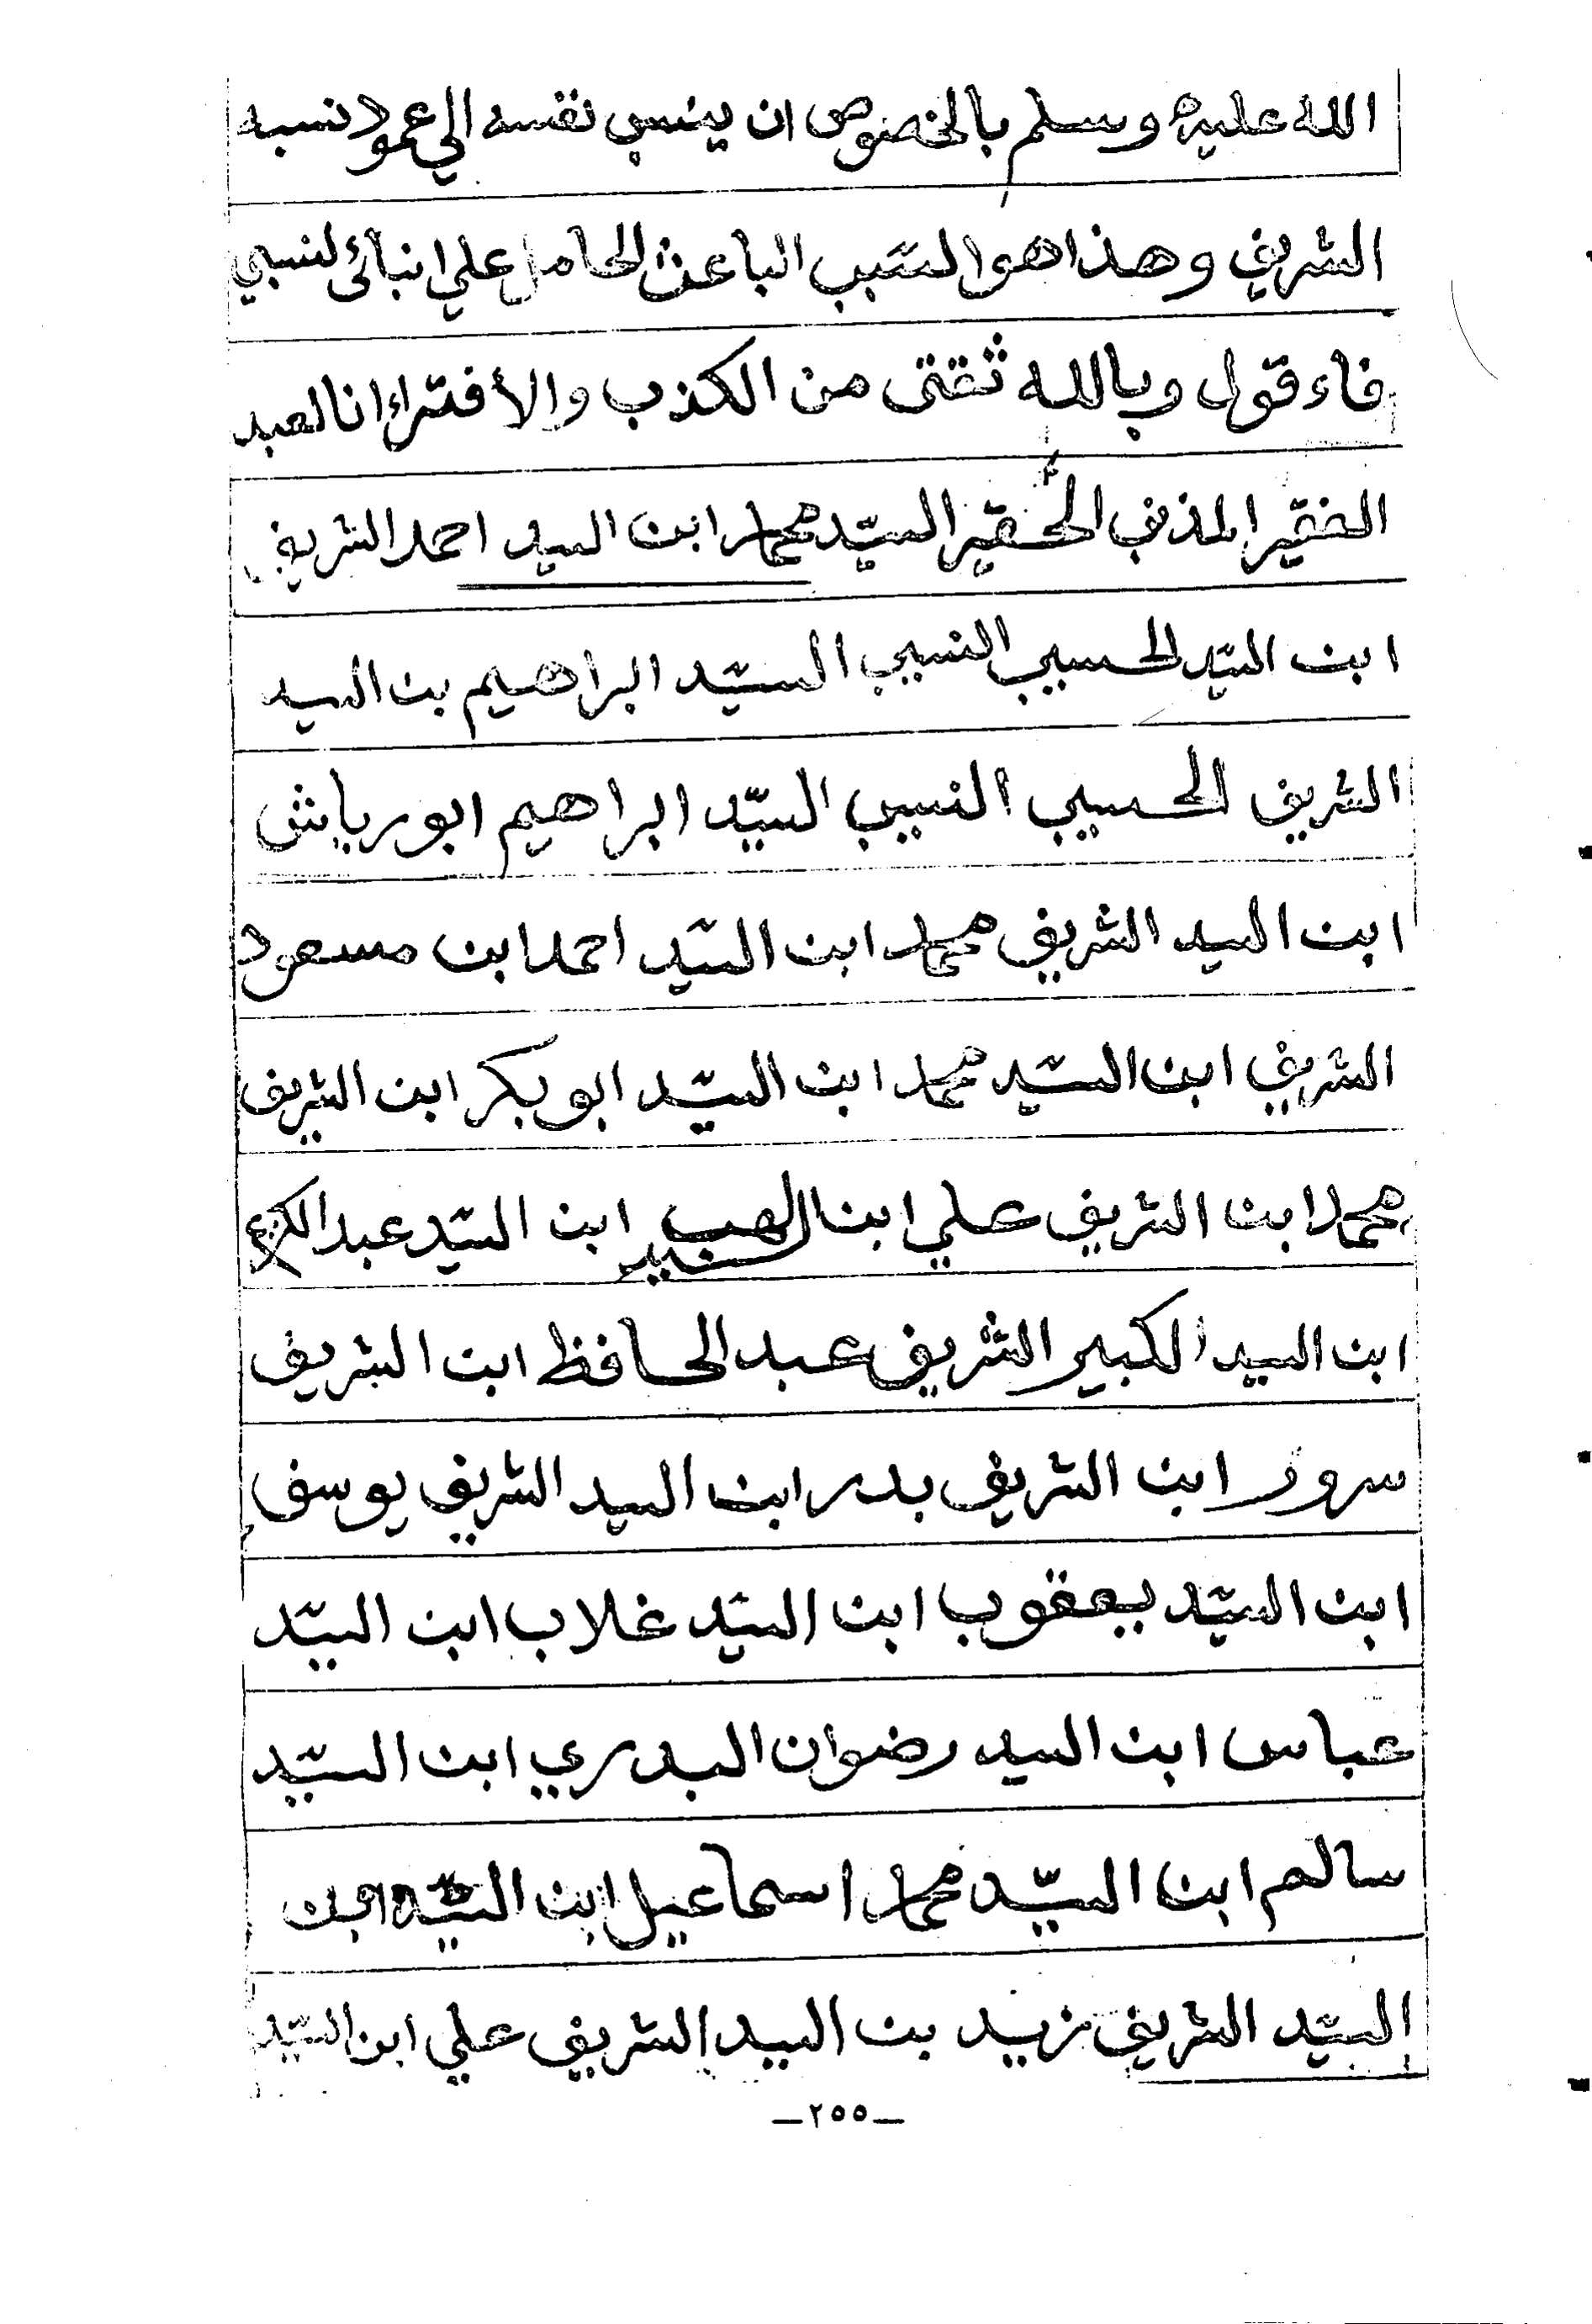 الله عليه وسلم بالخصوص ان ينسب نفسه الي عمود نسبه
الشريف وهذا هو السّبب الباعث الحامل علي انبائى لنسبي
فاءقول وبالله ثقتى من الكذب والأفتراء انا العبد
الفقير المذنب الحقير السيّد محمد ابن السيد احمد الشريف
ابن السيّد الحسيب النسيب السيّد ابراهيم بن السيد
الشريف الحسيب النسيب السيّد ابراهيم ابو رياش
ابن السيد الشريف محمد ابن السيّد احمد ابن مسعود
الشريف ابن السيّد محمد ابن السيّد ابو بكر ابن الشريف
محمد ابن الشريف علي ابن ابن السيّد عبد الكريم
ابن السيد الكبير الشريف عبد الحافظ ابن الشريف
سرور ابن الشريف بدر ابن السيد الشريف يوسف
ابن السيّد يعقوب ابن السيّد غلاب ابن السيّد
عباس ابن السيد رضوان البدري ابن السيّد
سالم ابن السيّد محمد اسماعيل ابن السيّد ابن
السيّد الشريف زيد بن السيد الشريف علي ابن السيّد
—٢٥٥—